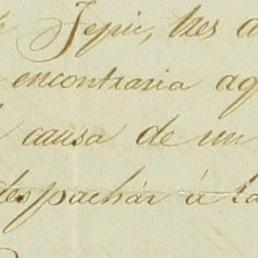 Jepic, tres
encontraria aq
causa de un
despachar á la